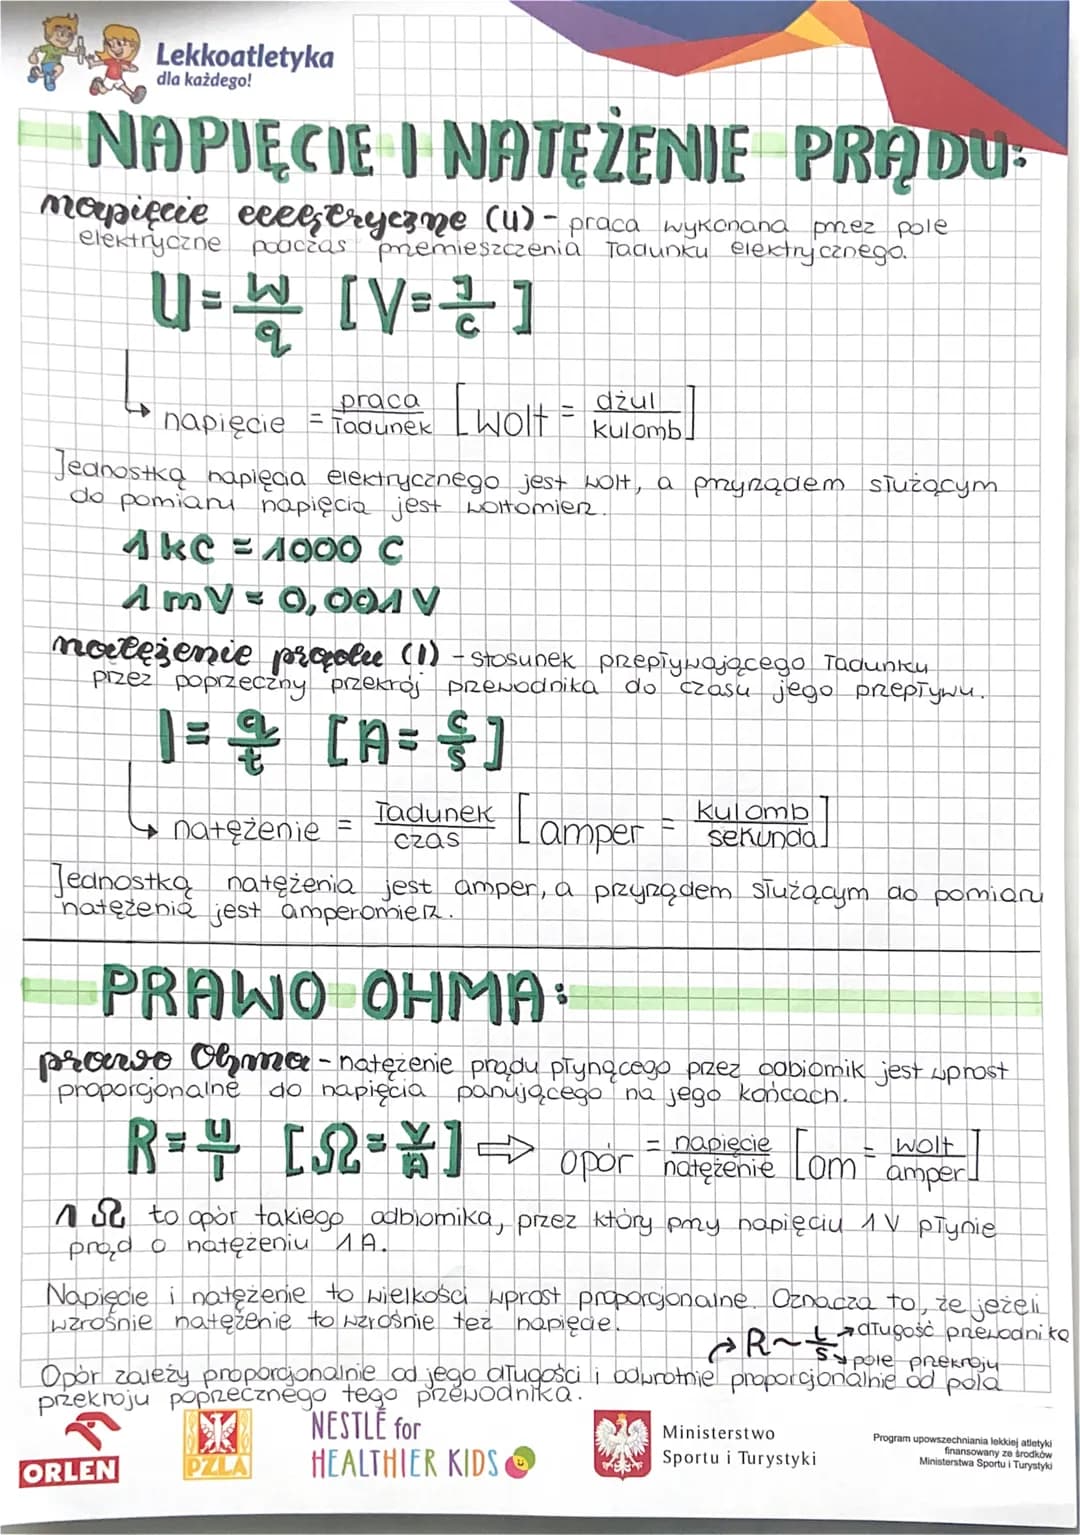 Lekkoatletyka
dla każdego!
NAPIĘCIE I NATĘŻENIE PRĄDU:
napięcie elektryczne (U) - praca wykonana przez pole
elektryczne podczas przemieszczenia ładunku elektrycznego.
U = W/q [V = J/C]
napięcie = praca/ładunek [wolt = dżul/kulomb]
Jednostką napięcia elektrycznego jest wolt, a przyrządem służącym
do pomiaru napięcia jest woltomierz.
1 kC = 1000 C
1 mV = 0,001 V
natężenie prądu (I) - stosunek przepływającego ładunku
przez poprzeczny przekrój przewodnika do czasu jego przepływu.
I = q/t [A = C/s]
natężenie = ładunek/czas [amper = kulomb/sekunda]
Jednostką natężenia jest amper, a przyrządem służącym do pomiaru
natężenia jest amperomierz.
PRAWO OHMA:
prawo Ohma - natężenie prądu płynącego przez odbiornik jest wprost
proporcjonalne do napięcia panującego na jego końcach.
R = U/I [Ω = V/A] ⇒ opór = napięcie/natężenie [om = wolt/amper]
1 Ω to opór takiego odbiornika, przez który przy napięciu 1 V płynie
prąd o natężeniu 1 A.
Napięcie i natężenie to wielkości wprost proporcjonalne. Oznacza to, że jeżeli
wzrośnie natężenie to wzrośnie też napięcie.
→ R ~ L/S → długość przewodnika
→ pole przekroju
Opór zależy proporcjonalnie od jego długości i odwrotnie proporcjonalnie od pola
przekroju poprzecznego tego przewodnika.
ORLEN
PZLA
NESTLÉ for
HEALTHIER KIDS
Ministerstwo
Sportu i Turystyki
Program upowszechniania lekkiej atletyki
finansowany ze środków
Ministerstwa Sportu i Turystyki